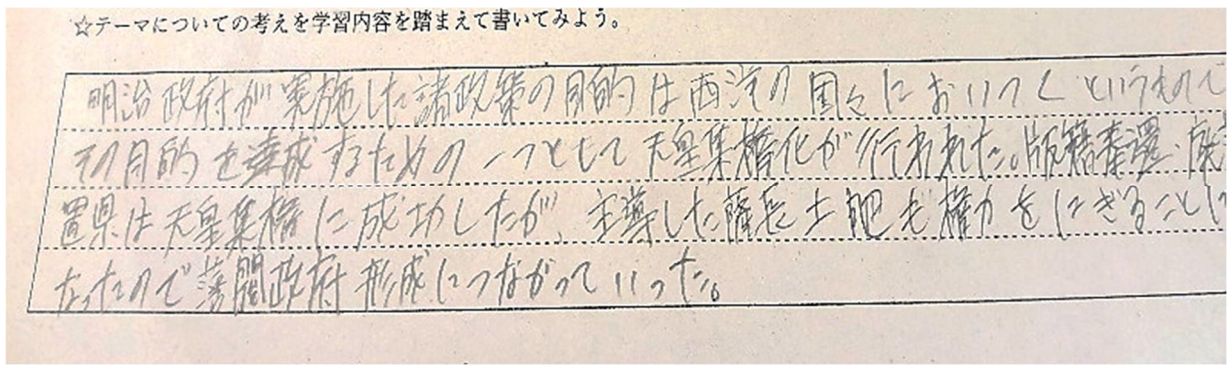 ☆テーマについての考えを学習内容を踏まえて書いてみよう。
明治政府が実施した諸政策の目的は西洋の国々においつくというもので
その目的を達成するための一つとして天皇集権化が行われた。版籍奉還、廃
置県は天皇集権に成功したが、主導した薩長土肥も権力をにぎることに
なったので藩閥政府形成につながっていった。